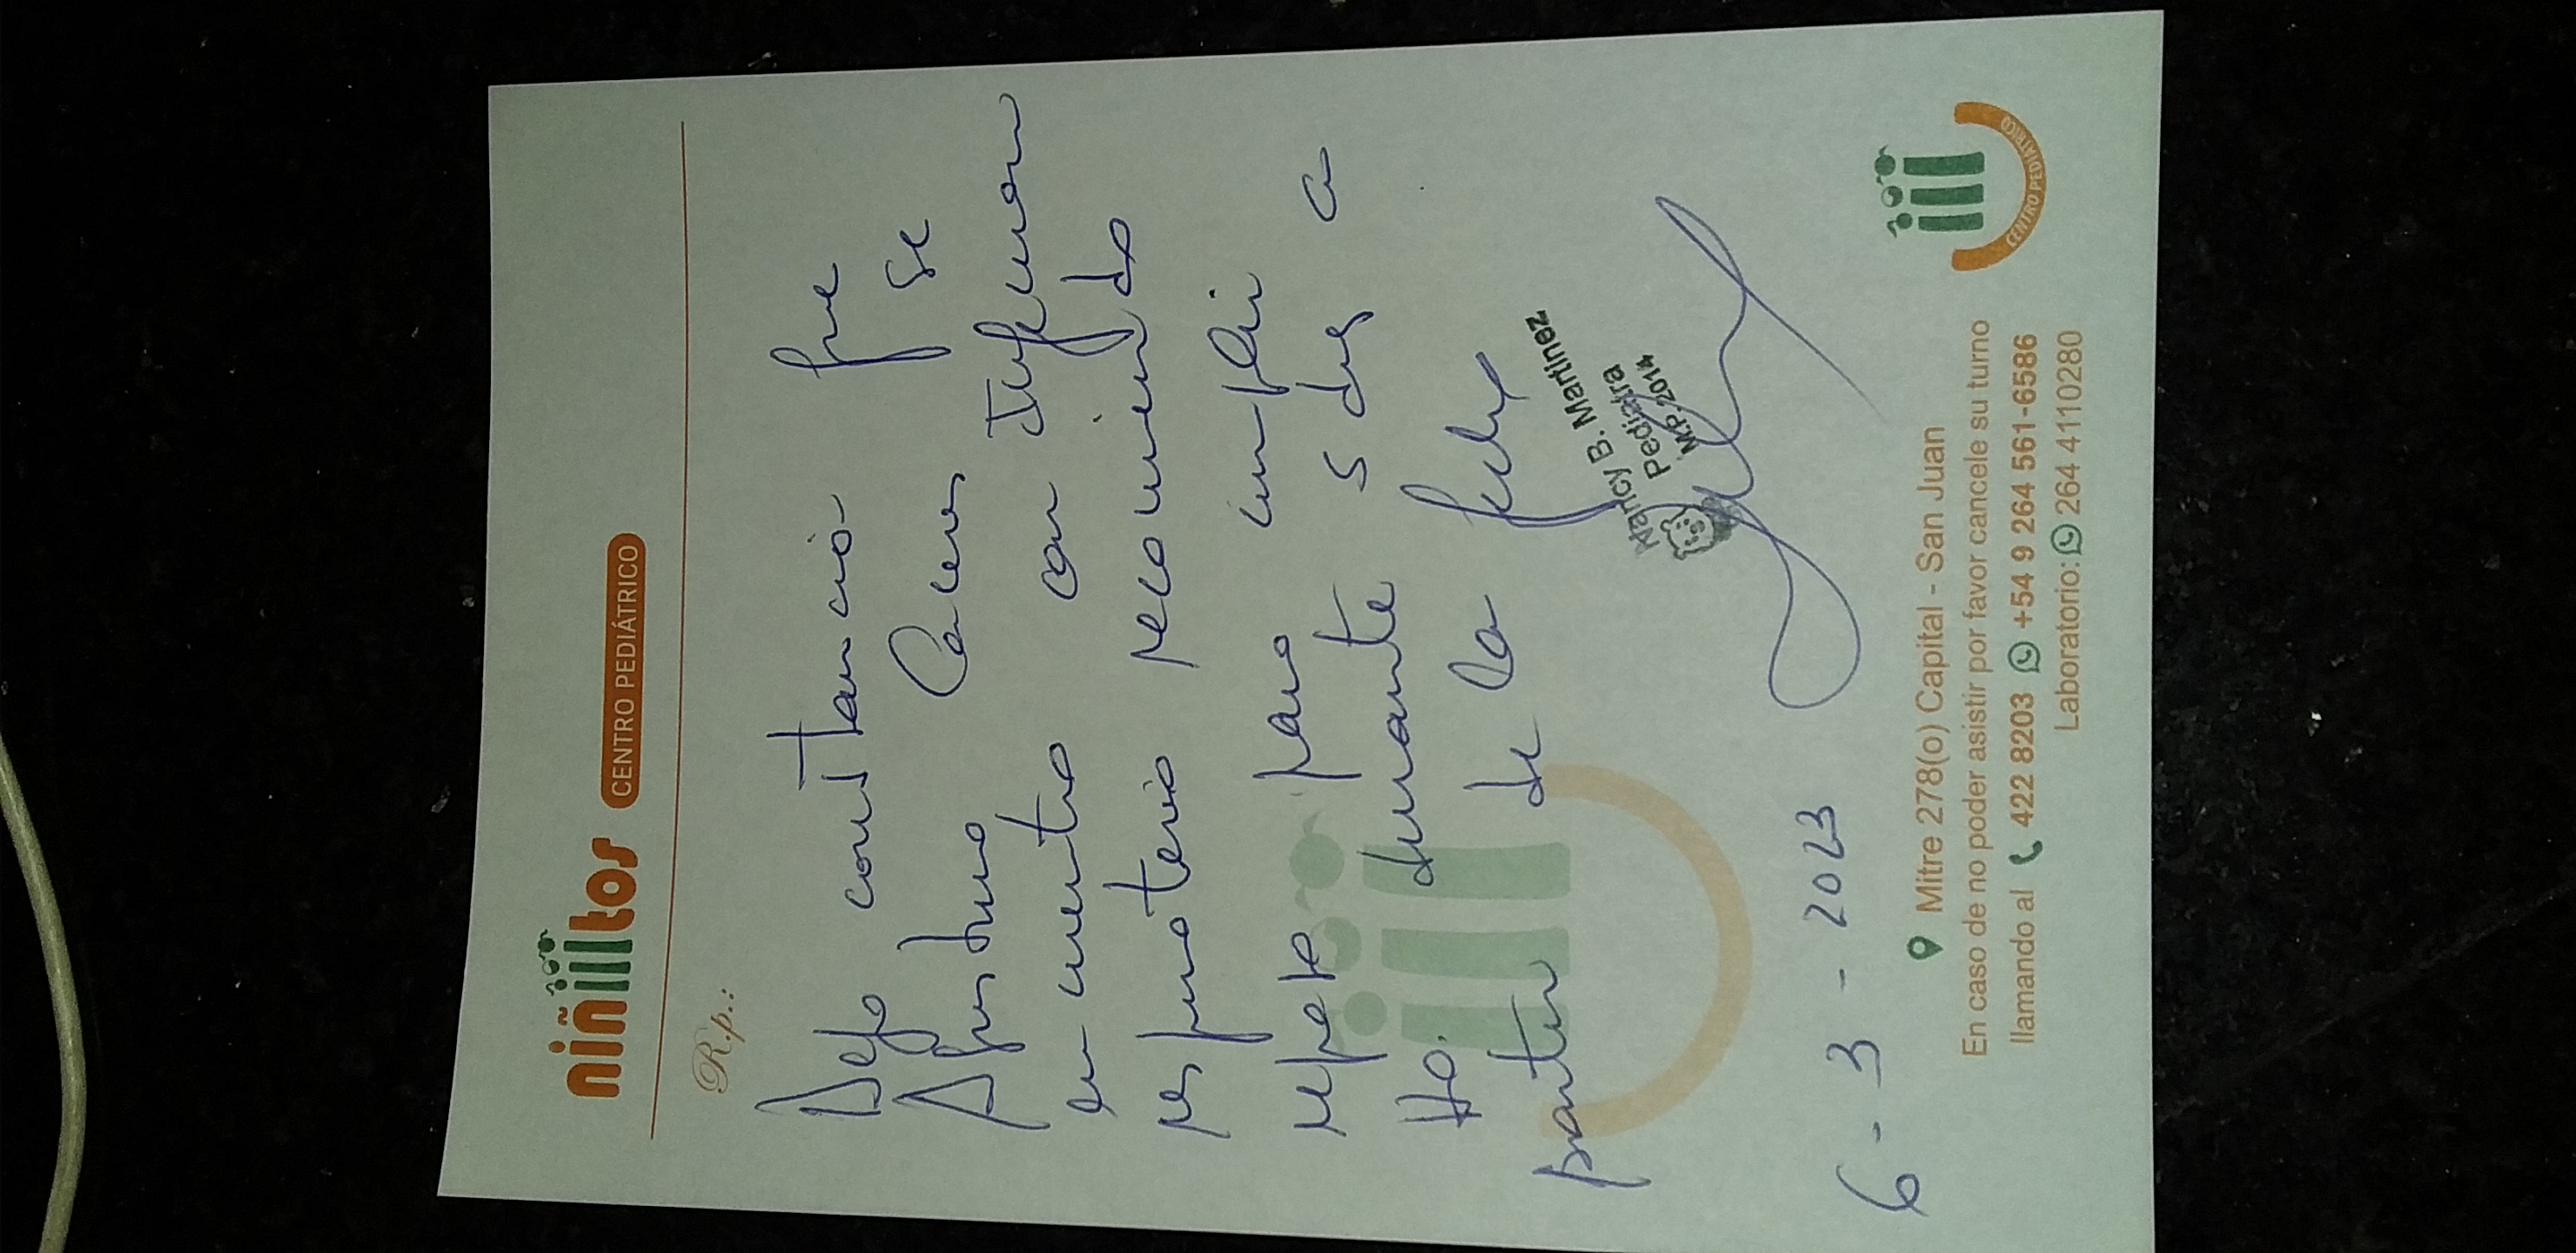 niñiitos
CENTRO PEDIÁTRICO
R.p.:
Dejo constancia que
se
encuentra con Infeccion
respiratoria recomiendo
reposo para cumplir
durante 5 dias a
partir de la fecha
Nancy B. Martinez
Pediatra
M.P. 2014
6 - 3 - 2023
Mitre 278(o) Capital - San Juan
En caso de no poder asistir por favor cancele su turno
llamando al 422 8203 +54 9 264 561-6586
Laboratorio: 264 4110280
CENTRO PEDIÁTRICO